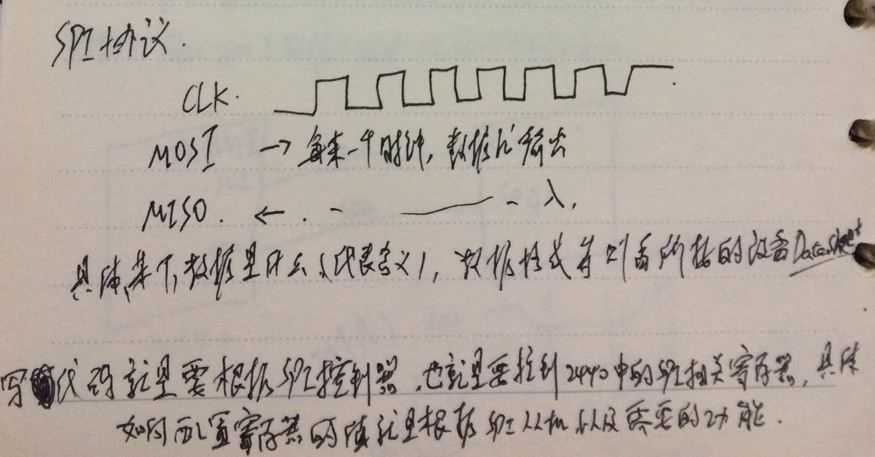 SPI协议.
CLK.
MOSI → 每来一个时钟,数据位移出
MISO. ← . - —— - 入.
具体某个数据是什么(代表含义),数据格式等则看所接的设备Datasheet
写代码就是要根据SPI控制器,也就是要控制2440中的SPI相关寄存器,具体
如何配置寄存器的值就是根据SPI从机以及需要的功能.